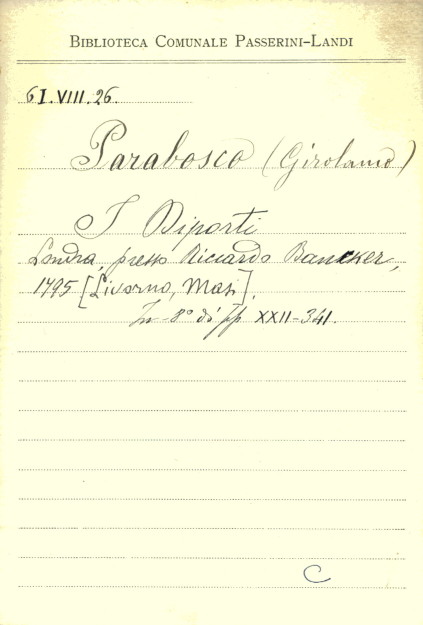 BIBLIOTECA COMUNALE PASSERINI-LANDI
6I.VIII.26.
Parabosco (Girolamo)
I Diporti
Londra, presso Riccardo Bancker,
1795 [Livorno, Masi].
In-8° di pp XXII-341.
C